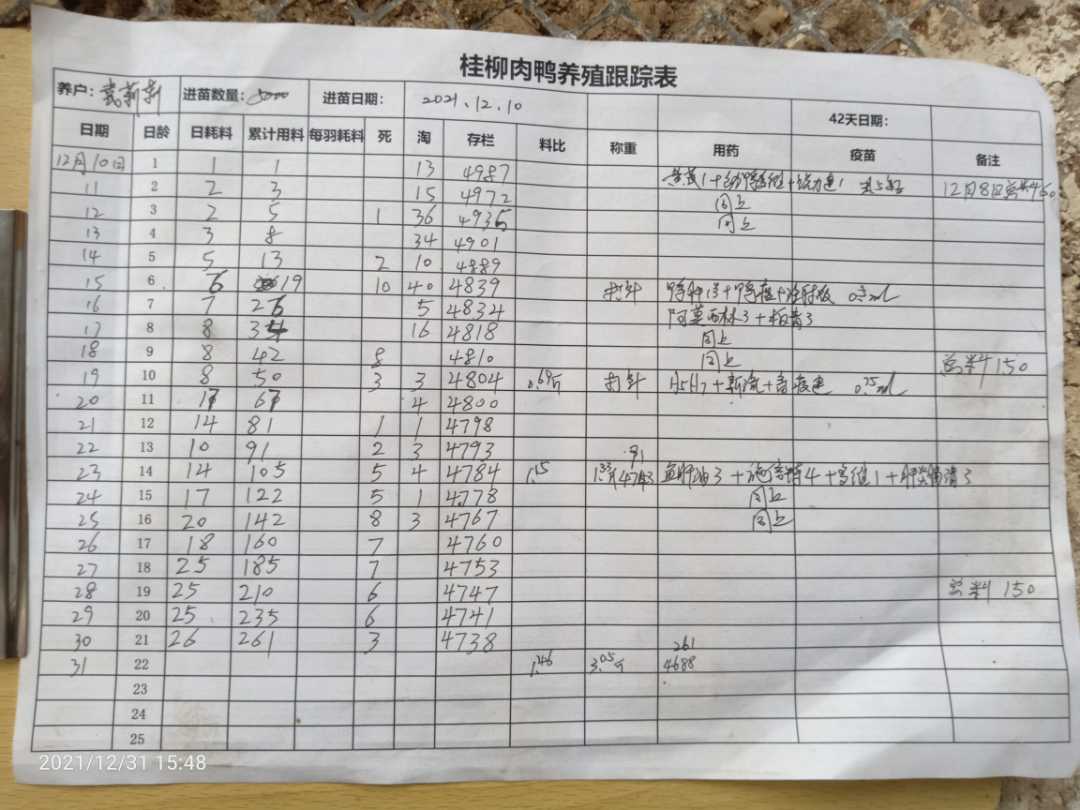 桂柳肉鸭养殖跟踪表
养户: 进苗数量: 5000 进苗日期: 2021.12.10 42天日期:
日期 日龄 日耗料 累计用料 每羽耗料 死 淘 存栏 料比 称重 用药 疫苗 备注
12月10日 1 1 1 13 4987
11 2 2 3 15 4972 12月8日
12 3 2 5 1 36 4935 同上
13 4 3 8 34 4901 同上
14 5 5 13 2 10 4889
15 6 6 19 10 40 4839 打针
16 7 7 26 5 4834 阿莫西林3+
17 8 8 34 16 4818 同上
18 9 8 42 8 4810 同上
19 10 8 50 3 3 4804 打针 H5H7+新流+ 料150
20 11 17 67 4 4800
21 12 14 81 1 1 4798
22 13 10 91 2 3 4793 91
23 14 14 105 5 4 4784 1.15
24 15 17 122 5 1 4778 同上
25 16 20 142 8 3 4767 同上
26 17 18 160 7 4760
27 18 25 185 7 4753
28 19 25 210 6 4747 料150
29 20 25 235 6 4741
30 21 26 261 3 4738 261
31 22 1.46 3.05斤 4688
23
24
25
2021/12/31 15:48